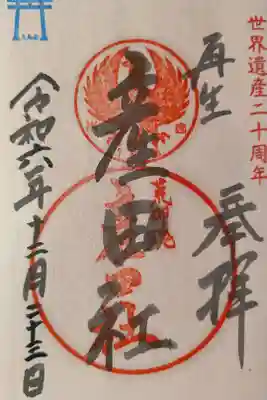 世界遺産二十周年
再生
奉拝
産田社
令和六年十二月二十三日